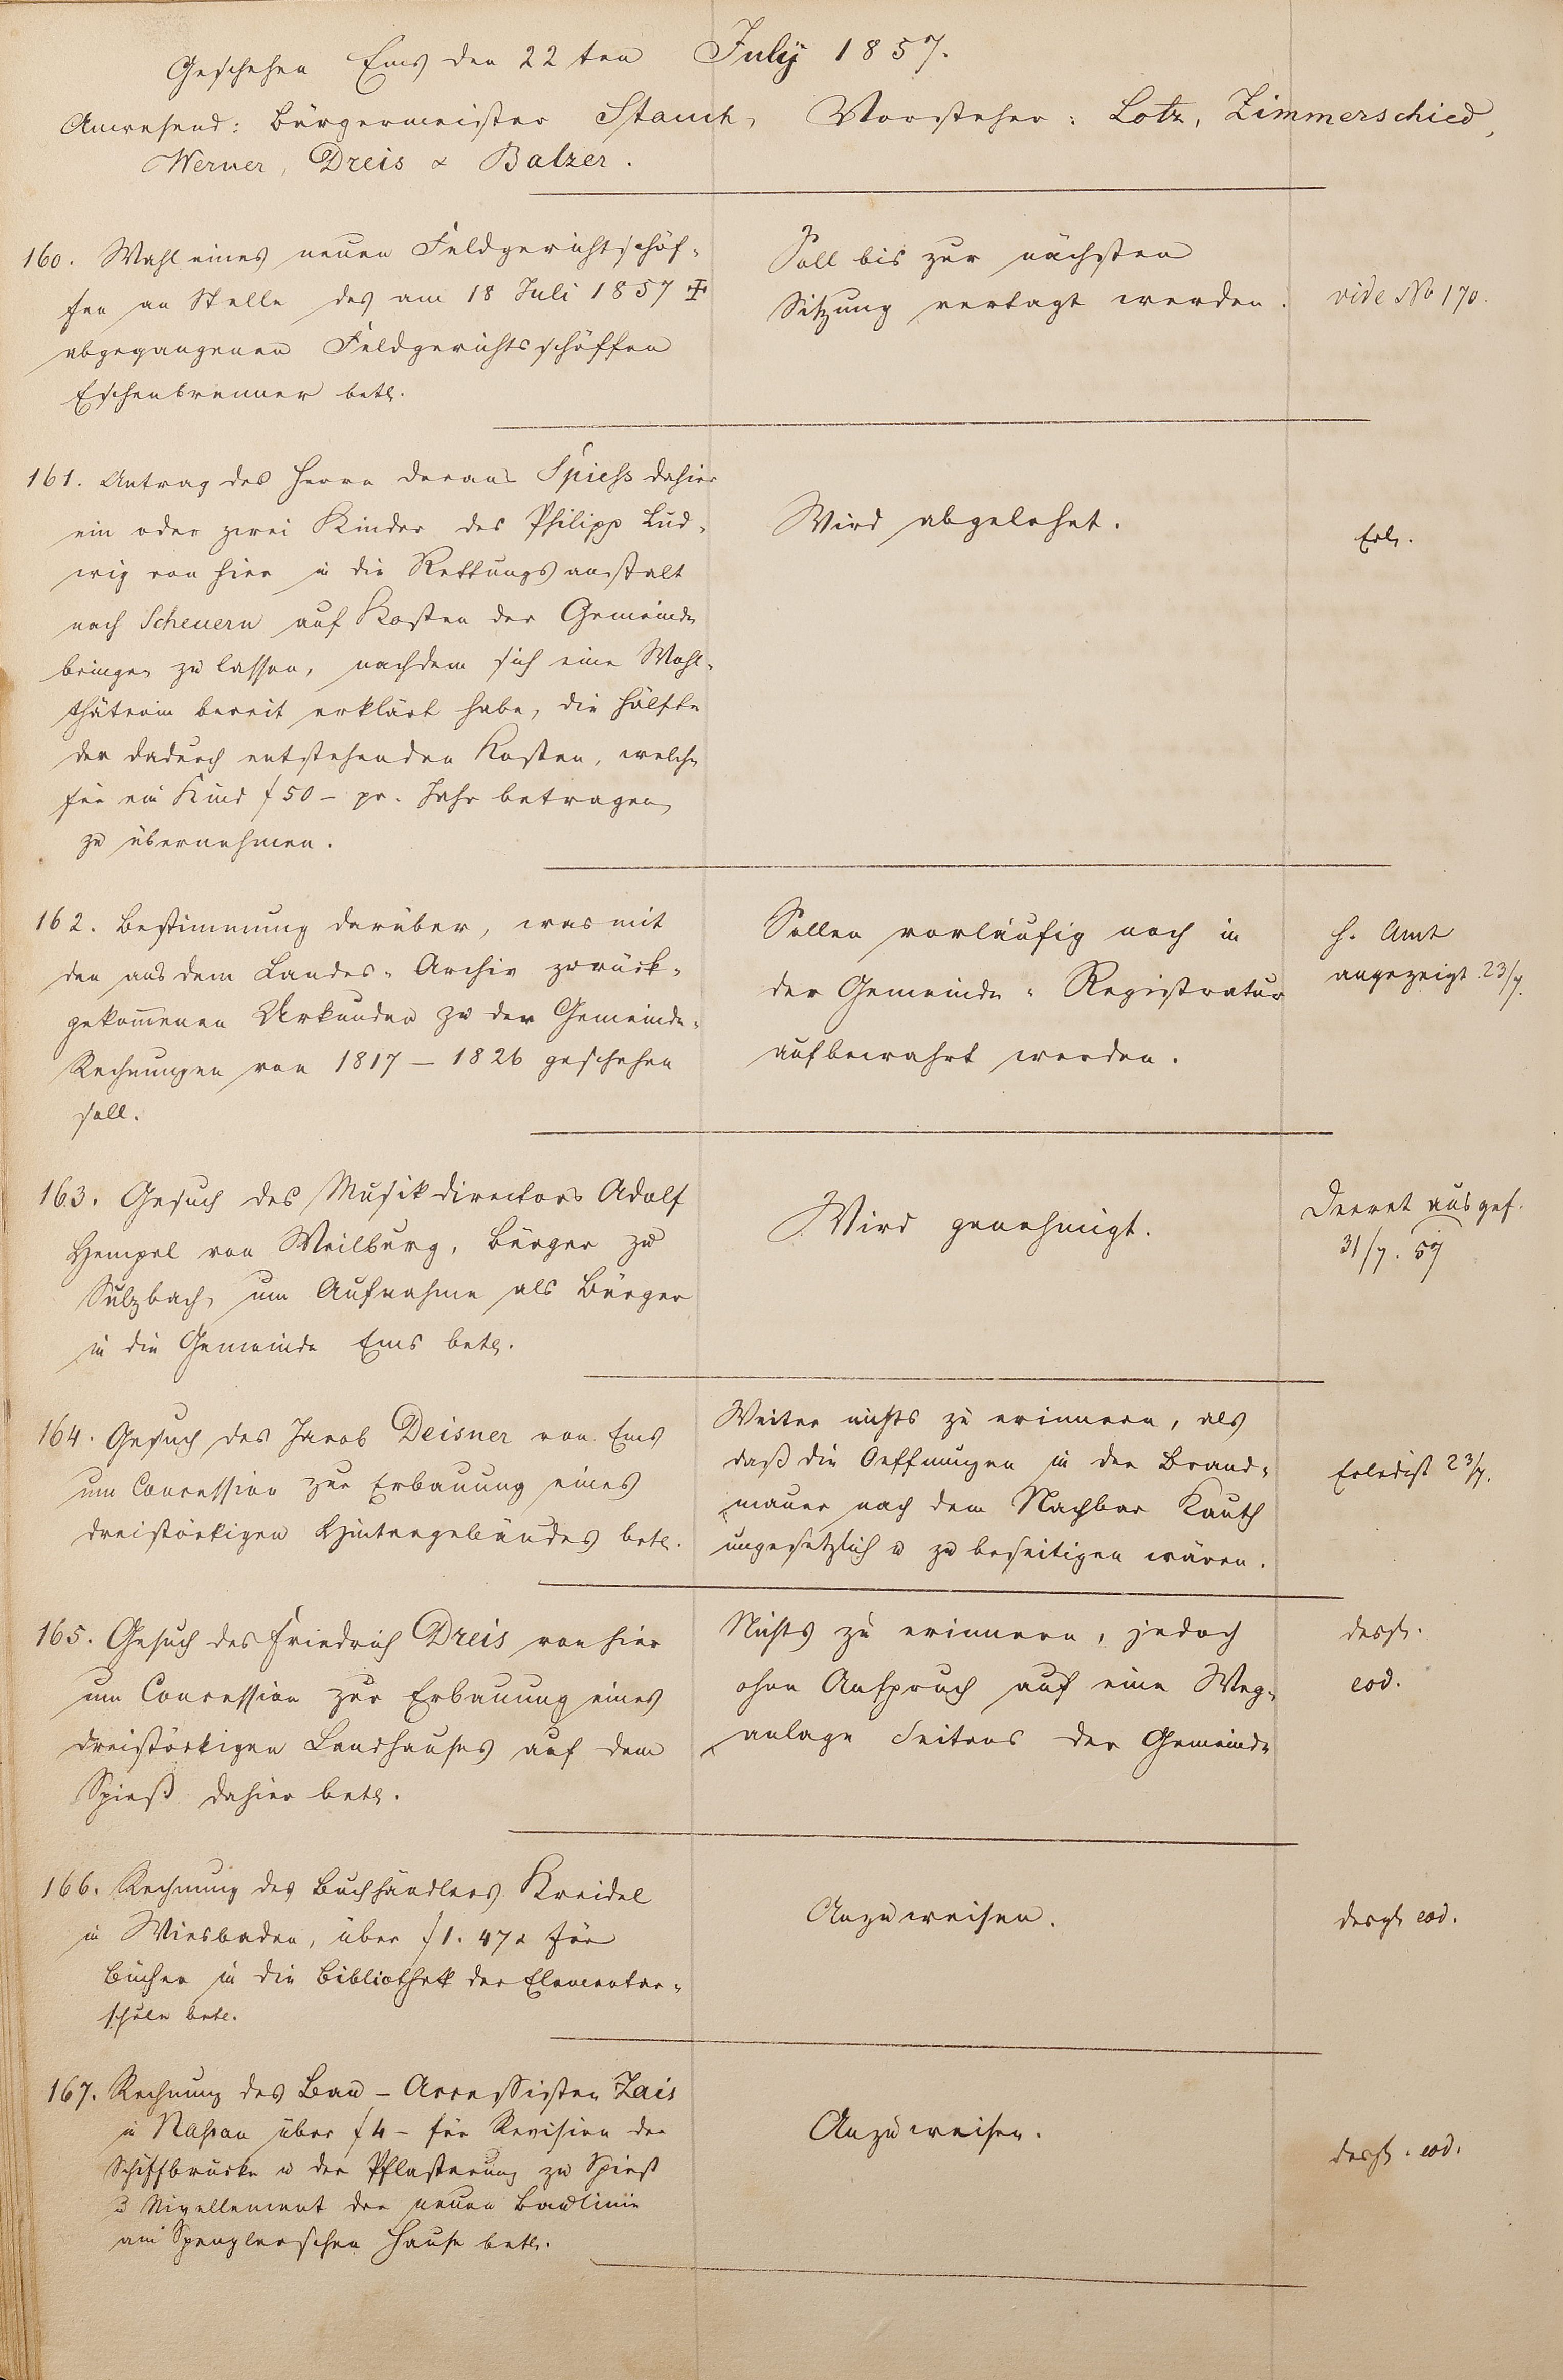 Geschehen Ems den 22ten July 1857.
Anwesend: Bürgermeister Stauch, Vorsteher: Lotz, Zimmerschied,
Werner, Dreis & Balzer.
160. Wahl eines neuen Feldgerichtschöf-
fen an Stelle des am 18 Juli 1857 ‡
abgegangenen Feldgerichtsschöffen
Eschenbrenner betr.
Soll bis zur nächsten
Sitzung vertagt werden.
vide No 170.
161. Antrag des Herrn Decans Spiess dahier
ein oder zwei Kinder des Philipp Lud-
wig von hier in die Rettungsanstalt
nach Scheuern auf Kosten der Gemeinde
bringen zu lassen, nachdem sich eine Wohl-
thäterin bereit erklärt habe, die Hälfte
der dadurch entstehenden Kosten, welche
für ein Kind f 50 – pr. Jahr betragen,
zu übernehmen.
Wird abgelehnt.
Erl.
162. Bestimmung darüber, was mit
den aus dem Landes-Archiv zurück-
gekommenen Urkunden zu den Gemeinde-
Rechnungen von 1817 – 1826 geschehen
soll.
Sollen vorläufig noch in
der Gemeinde-Registratur
aufbewahrt werden.
H. Amt
angezeigt 23/7.
163. Gesuch des Musikdirectors Adolf
Hempel von Weilburg, Bürger zu
Sulzbach, um Aufnahme als Bürger
in die Gemeinde Ems betr.
Wird genehmigt.
Decret ausgef.
31/7. 57
164. Gesuch des Jacob Deisner von Ems
um Concession zur Erbauung eines
dreistöckigen Hintergebäudes betr.
Weiter nichts zu erinnern, als
daß die Oeffnungen in der Brand-
mauer nach dem Nachbar Kauth
ungesetzlich u zu beseitigen wären.
Erledigt 23/7.
165. Gesuch des Friedrich Dreis von hier
um Concession zur Erbauung eines
dreistöckigen Landhauses auf dem
Spieß dahier betr.
Nichts zu erinnern, jedoch
ohne Anspruch auf eine Weg-
anlage Seitens der Gemeinde
desgl.
eod.
166. Rechnung des Buchhändlers Kreidel
in Wiesbaden, über f 1. 47 x für
Bücher in die Bibliothek der Elementar-
schule betr.
Anzuweisen.
desgl. eod.
167. Rechnung des Bau-Accessisten Zais
in Nassau über f 4 – für Revision der
Schiffbrücke u der Pflasterung zu Spieß
u Nivellement der neuen Baulinie
am Spenglerschen Hause betr.
Anzuweisen.
desgl. eod.